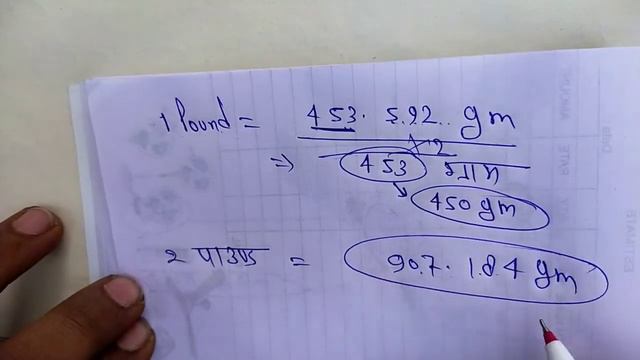 1 Pound = 453.592.. gm
×2
⇒ 453 ग्राम
450 gm
2 पाउण्ड = 907.184 gm